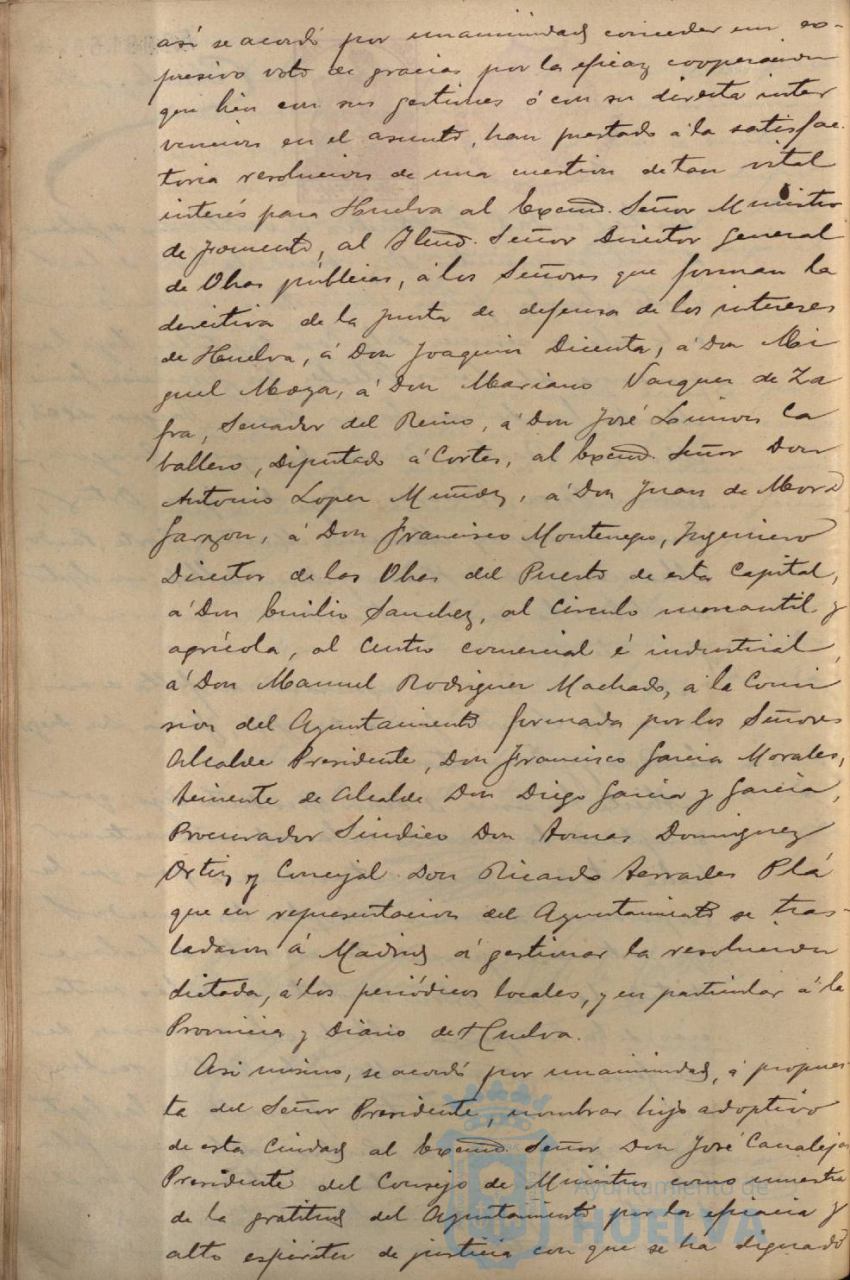 así se acordó por unanimidad conceder un ex-
presivo voto de gracias por la eficaz cooperacion
que bien con sus gestiones ó con su directa inter
vencion en el asunto, han prestado á la satisfac-
toria resolucion de una cuestion de tan vital
interés para Huelva al Excmo. Señor Ministro
de fomento, al Iltmo. Señor Director general
de Obras públicas, á los Señores que forman la
directiva de la junta de defensa de los intereses
de Huelva, á Don Joaquin Dicenta, á Don Mi
guel Moya, á Don Mariano Vazquez de Za
fra, Senador del Reino, á Don José Limon Ca
ballero, Diputado á Cortes, al Excmo. Señor Don
Antonio Lopez Muñoz, á Don Juan de Mora
Garzon, á Don Francisco Montenegro, Ingeniero
Director de las Obras del Puerto de esta Capital,
á Don Emilio Sanchez, al Circulo mercantil y
agrícola, al Centro comercial é industrial,
á Don Manuel Rodriguez Machado, á la Comi
sion del Ayuntamiento formada por los Señores
Alcalde Presidente, Don Francisco Garcia Morales,
teniente de Alcalde Don Diego Garcia y Garcia,
Procurador Sindico Don Tomas Dominguez
Ortiz y Concejal Don Ricardo Terrades Plá
que en representacion del Ayuntamiento se tras-
ladaron á Madrid á gestionar la resolucion
dictada, á los periódicos locales, y en particular á la
Provincia y Diario de Huelva.
Asi mismo, se acordó por unanimidad, á propues-
ta del Señor Presidente, nombrar hijo adoptivo
de esta Ciudad al Excmo. Señor Don José Canalejas
Presidente del Consejo de Ministros como muestra
de la gratitud del Ayuntamiento por la eficacia y
alto espiritu de justicia con que se ha dignado
Ayuntamiento de
HUELVA